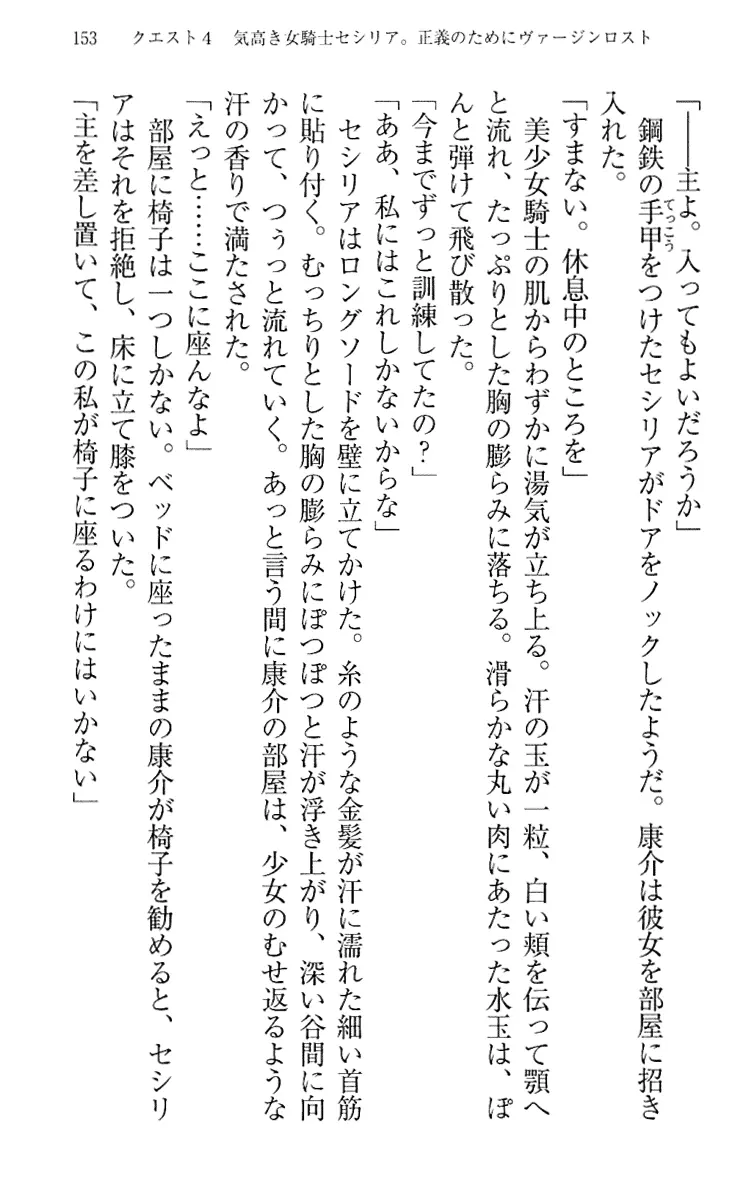 153　クエスト4　気高き女騎士セシリア。正義のためにヴァージンロスト
「――主よ。入ってもよいだろうか」
　鋼鉄の手甲をつけたセシリアがドアをノックしたようだ。康介は彼女を部屋に招き
てっこう
入れた。
「すまない。休息中のところを」
　美少女騎士の肌からわずかに湯気が立ち上る。汗の玉が一粒、白い頬を伝って顎へ
と流れ、たっぷりとした胸の膨らみに落ちる。滑らかな丸い肉にあたった水玉は、ぽ
んと弾けて飛び散った。
「今までずっと訓練してたの？」
「ああ、私にはこれしかないからな」
　セシリアはロングソードを壁に立てかけた。糸のような金髪が汗に濡れた細い首筋
に貼り付く。むっちりとした胸の膨らみにぽつぽつと汗が浮き上がり、深い谷間に向
かって、つぅっと流れていく。あっと言う間に康介の部屋は、少女のむせ返るような
汗の香りで満たされた。
「えっと……ここに座んなよ」
　部屋に椅子は一つしかない。ベッドに座ったままの康介が椅子を勧めると、セシリ
アはそれを拒絶し、床に立て膝をついた。
「主を差し置いて、この私が椅子に座るわけにはいかない」